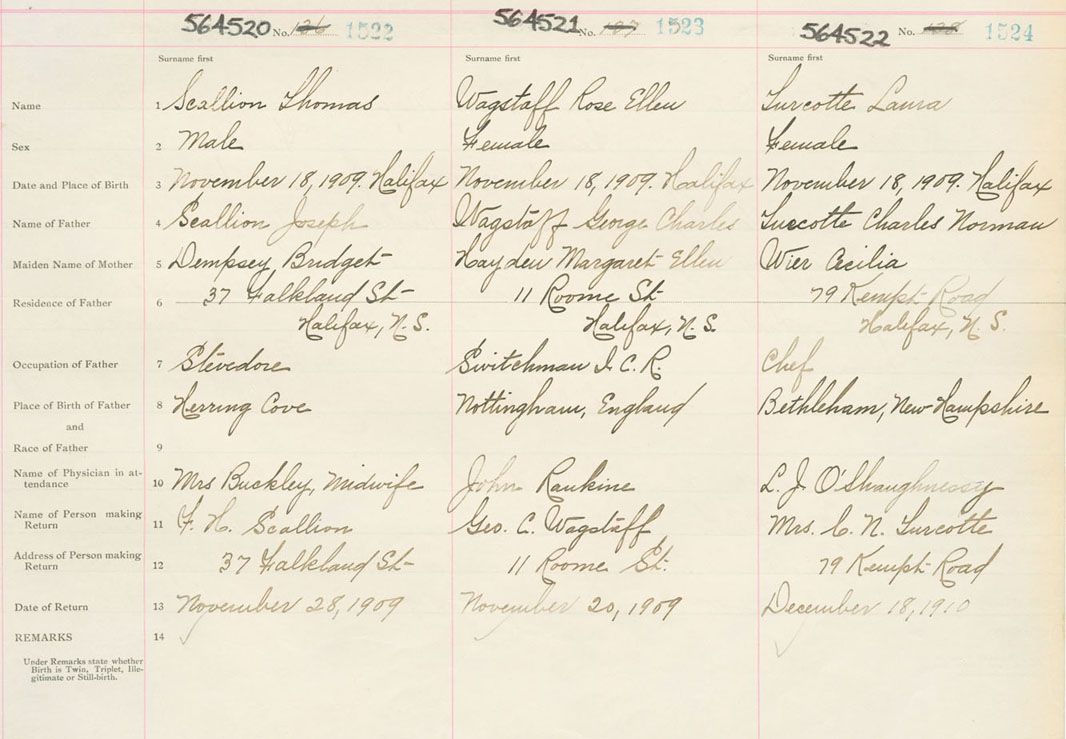 564520 No. 136 1522 564521 No. 137 1523 564522 No. 138 1524
Surname first Surname first Surname first
Name 1 Scallion Thomas Wagstaff Rose Ellen Turcotte Laura
Sex 2 Male Female Female
Date and Place of Birth 3 November 18, 1909. Halifax November 18, 1909. Halifax November 18, 1909. Halifax
Name of Father 4 Scallion Joseph Wagstaff George Charles Turcotte Charles Norman
Maiden Name of Mother 5 Dempsey, Bridget Hayden Margaret Ellen Wier Cecilia
Residence of Father 6 37 Falkland St 11 Roome St 79 Kempt Road
Halifax, N.S. Halifax, N.S. Halifax, N.S.
Occupation of Father 7 Stevedore Switchman I.C.R. Chef
Place of Birth of Father 8 Herring Cove Nottingham, England Bethleham, New Hampshire
and
Race of Father 9
Name of Physician in at-
tendance 10 Mrs Buckley, Midwife John Rankine L. J. O'Shaughnessy
Name of Person making
Return 11 F. H. Scallion Geo. C. Wagstaff Mrs. C. N. Turcotte
Address of Person making
Return 12 37 Falkland St 11 Roome St. 79 Kempt Road
Date of Return 13 November 28, 1909 November 20, 1909 December 18, 1910
REMARKS 14
Under Remarks state whether
Birth is Twin, Triplet, Ille-
gitimate or Still-birth.